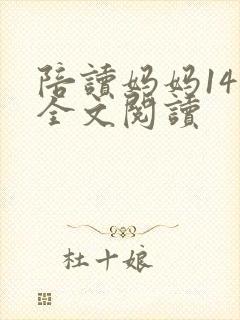 陪讀妈妈14
全文閱讀
杜十娘